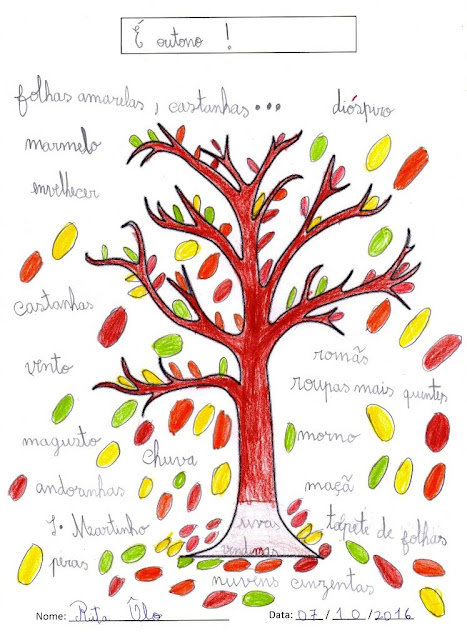 É outono !
folhas amarelas, castanhas... dióspiro
marmelo
envelhecer
castanhas
romãs
vento
roupas mais quentes
magusto
morno
chuva
andorinhas
maçã
S. Martinho
uvas
tapete de folhas
peras
vindimas
nuvens cinzentas
Nome: Rita Data: 07/10/2016